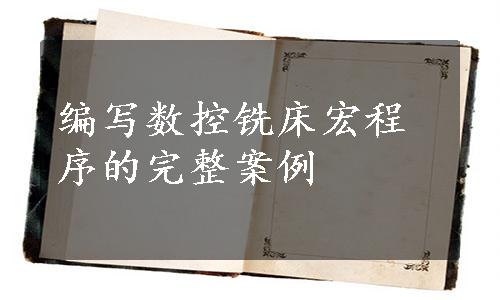 编写数控铣床宏程
序的完整案例